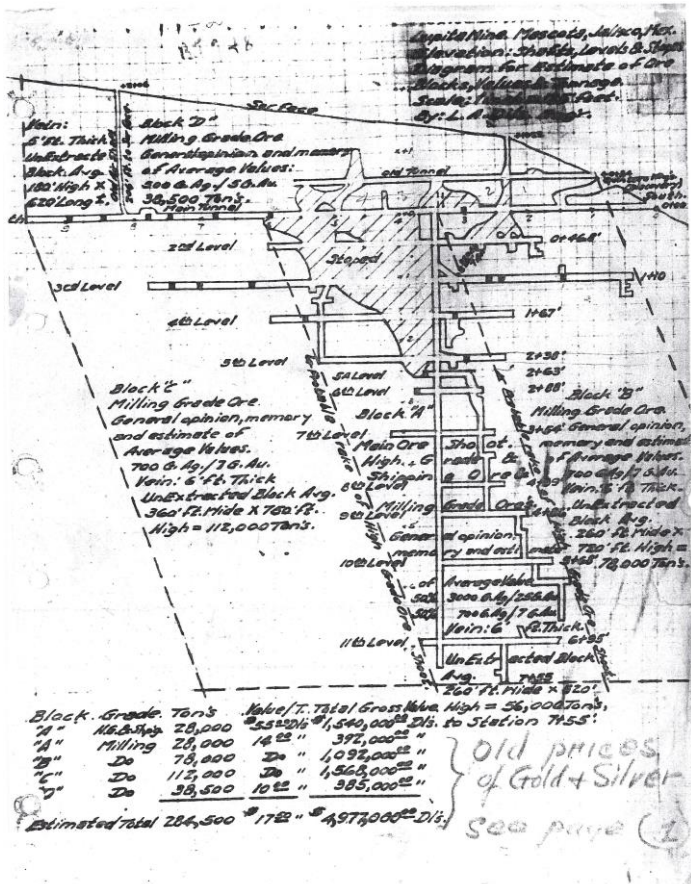 Lupita Mine, Mascota, Jalisco, Mex.
Elevation: Shafts, Levels & Stopes
Diagram for Estimate of Ore
Blocks, Values & Tonnage.
Scale:
By: L. A.
Surface
Vein:
6' Ft. Thick
UnExtracted
Block Avg.
180' High X
620' Long
Block "D"
Milling Grade Ore
General opinion, and memory
of Average Values:
500 G. Ag. / 5 G. Au.
38,500 Ton's.
Main Tunnel
Old Tunnel
South
0+46.8'
2nd Level
Stoped
3rd Level
1+10
4th Level
1+67'
5th Level
2+38'
5A Level
2+63'
6th Level
2+88'
Block "C"
Milling Grade Ore.
General opinion, memory
and estimate of
Average Values.
700 G. Ag. / 7 G. Au.
Vein: 6' Ft. Thick
UnExtracted Block Avg.
360' Ft. Wide X 760' Ft.
High = 112,000 Ton's.
Probable rake of High Grade Ore Shoot
Block "A"
7th Level
Main Ore Shoot.
High Grade &
Shipping Ore
8th Level
Milling Grade Ore
9th Level
General opinion,
memory and estimate
10th Level
of Average Value
50% 3000 G. Ag / 25 G. Au
50% 700 G. Ag / 7 G. Au
Vein: 6' Ft. Thick.
11th Level
6+95'
UnExtracted Block
Avg.
7+55
260' Ft. Wide X 820'
High = 56,000 Ton's,
Block "B"
Milling Grade Ore.
General opinion,
memory and estimate
of Average Values.
700 G Ag / 7 G. Au.
Vein: 6' Ft. Thick.
UnExtracted
Block Avg.
260' Ft. Wide X
720' Ft. High =
78,000 Ton's.
Block. Grade. Ton's Value/T. Total Gross Value
"A" H.G.&Shp'g 28,000 $55.00 Dls $1,540,000.00 Dls. to Station 7+55'
"A" Milling 28,000 14.00 " 392,000.00 "
"B" Do 78,000 Do " 1,092,000.00 "
"C" Do 112,000 Do " 1,568,000.00 "
"D" Do 38,500 10.00 " 385,000.00 "
Estimated Total 284,500 $4,977,000.00 Dls.
old prices
of Gold & Silver
see page (1)